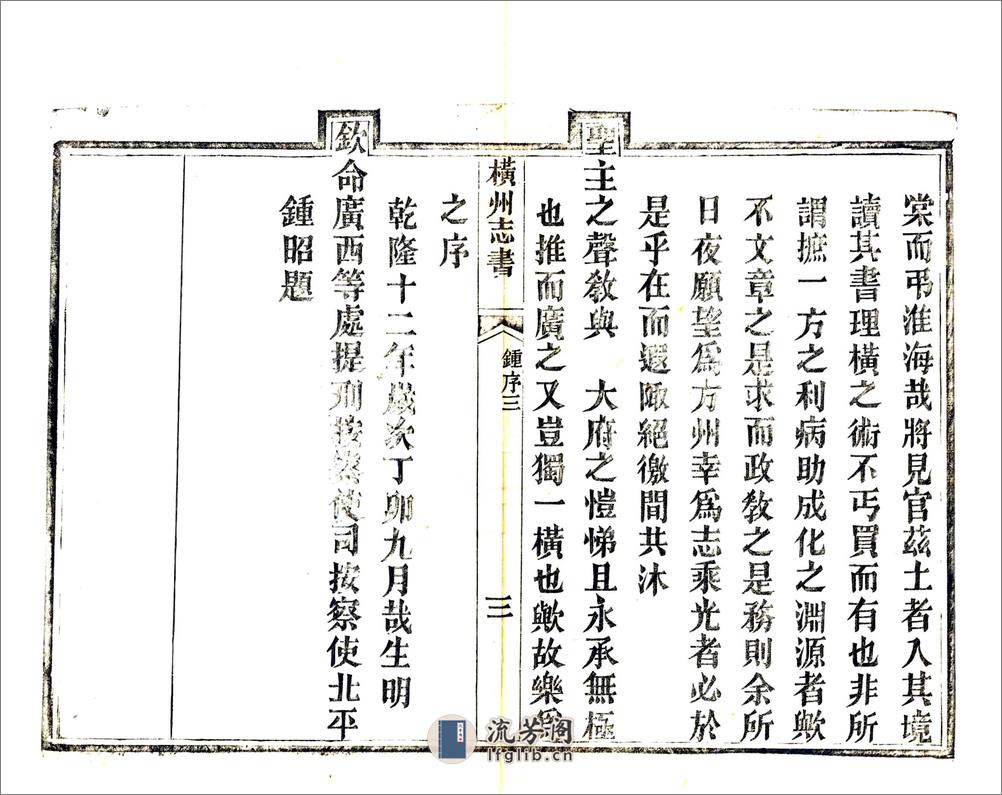 棠而弔淮海哉將見官茲土者入其境
讀其書理橫之術不丐買而有也非所
謂摭一方之利病助成化之淵源者歟
不文章之是求而政敎之是務則余所
日夜願望爲方州幸爲志乘光者必於
是乎在而遐陬絕徼間共沐
聖主之聲敎與 大府之愷悌且永承無極
也推而廣之又豈獨一橫也歟故樂爲
橫州志書
鍾序三
三
之序
乾隆十二年歲次丁卯九月哉生明
欽命廣西等處提刑按察使司按察使北平
鍾昭題
流芳阁
lfglib.cn